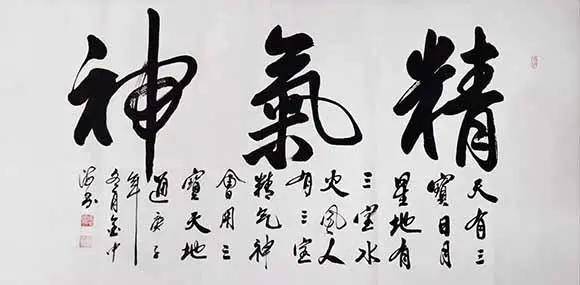 精氣神
天有三
寶日月
星地有
三宝水
火風人
有三宝
精气神
會用三
寶天地
通庚子
年
冬月金中